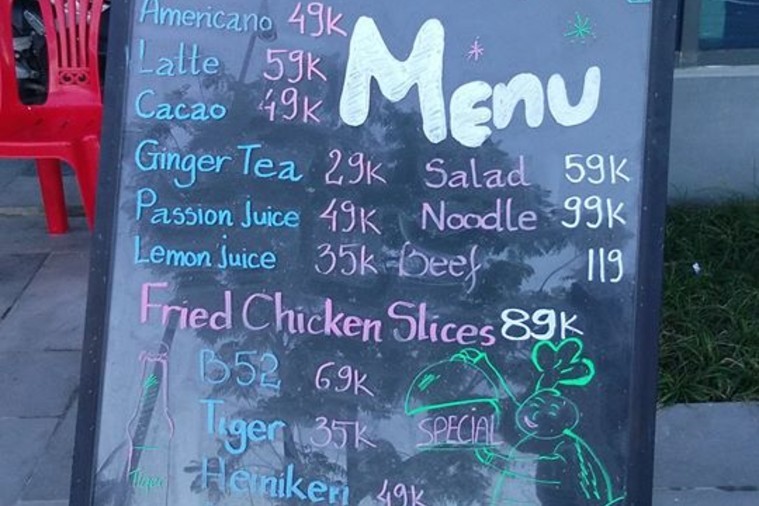 Americano 49K
Latte 59K
Cacao 49K
Menu
Ginger Tea 29K Salad 59K
Passion Juice 49K Noodle 99K
Lemon Juice 35K Beef 119
Fried Chicken Slices 89K
B52 69K
Tiger 35K SPECIAL
Heiniken 49K
Tiger